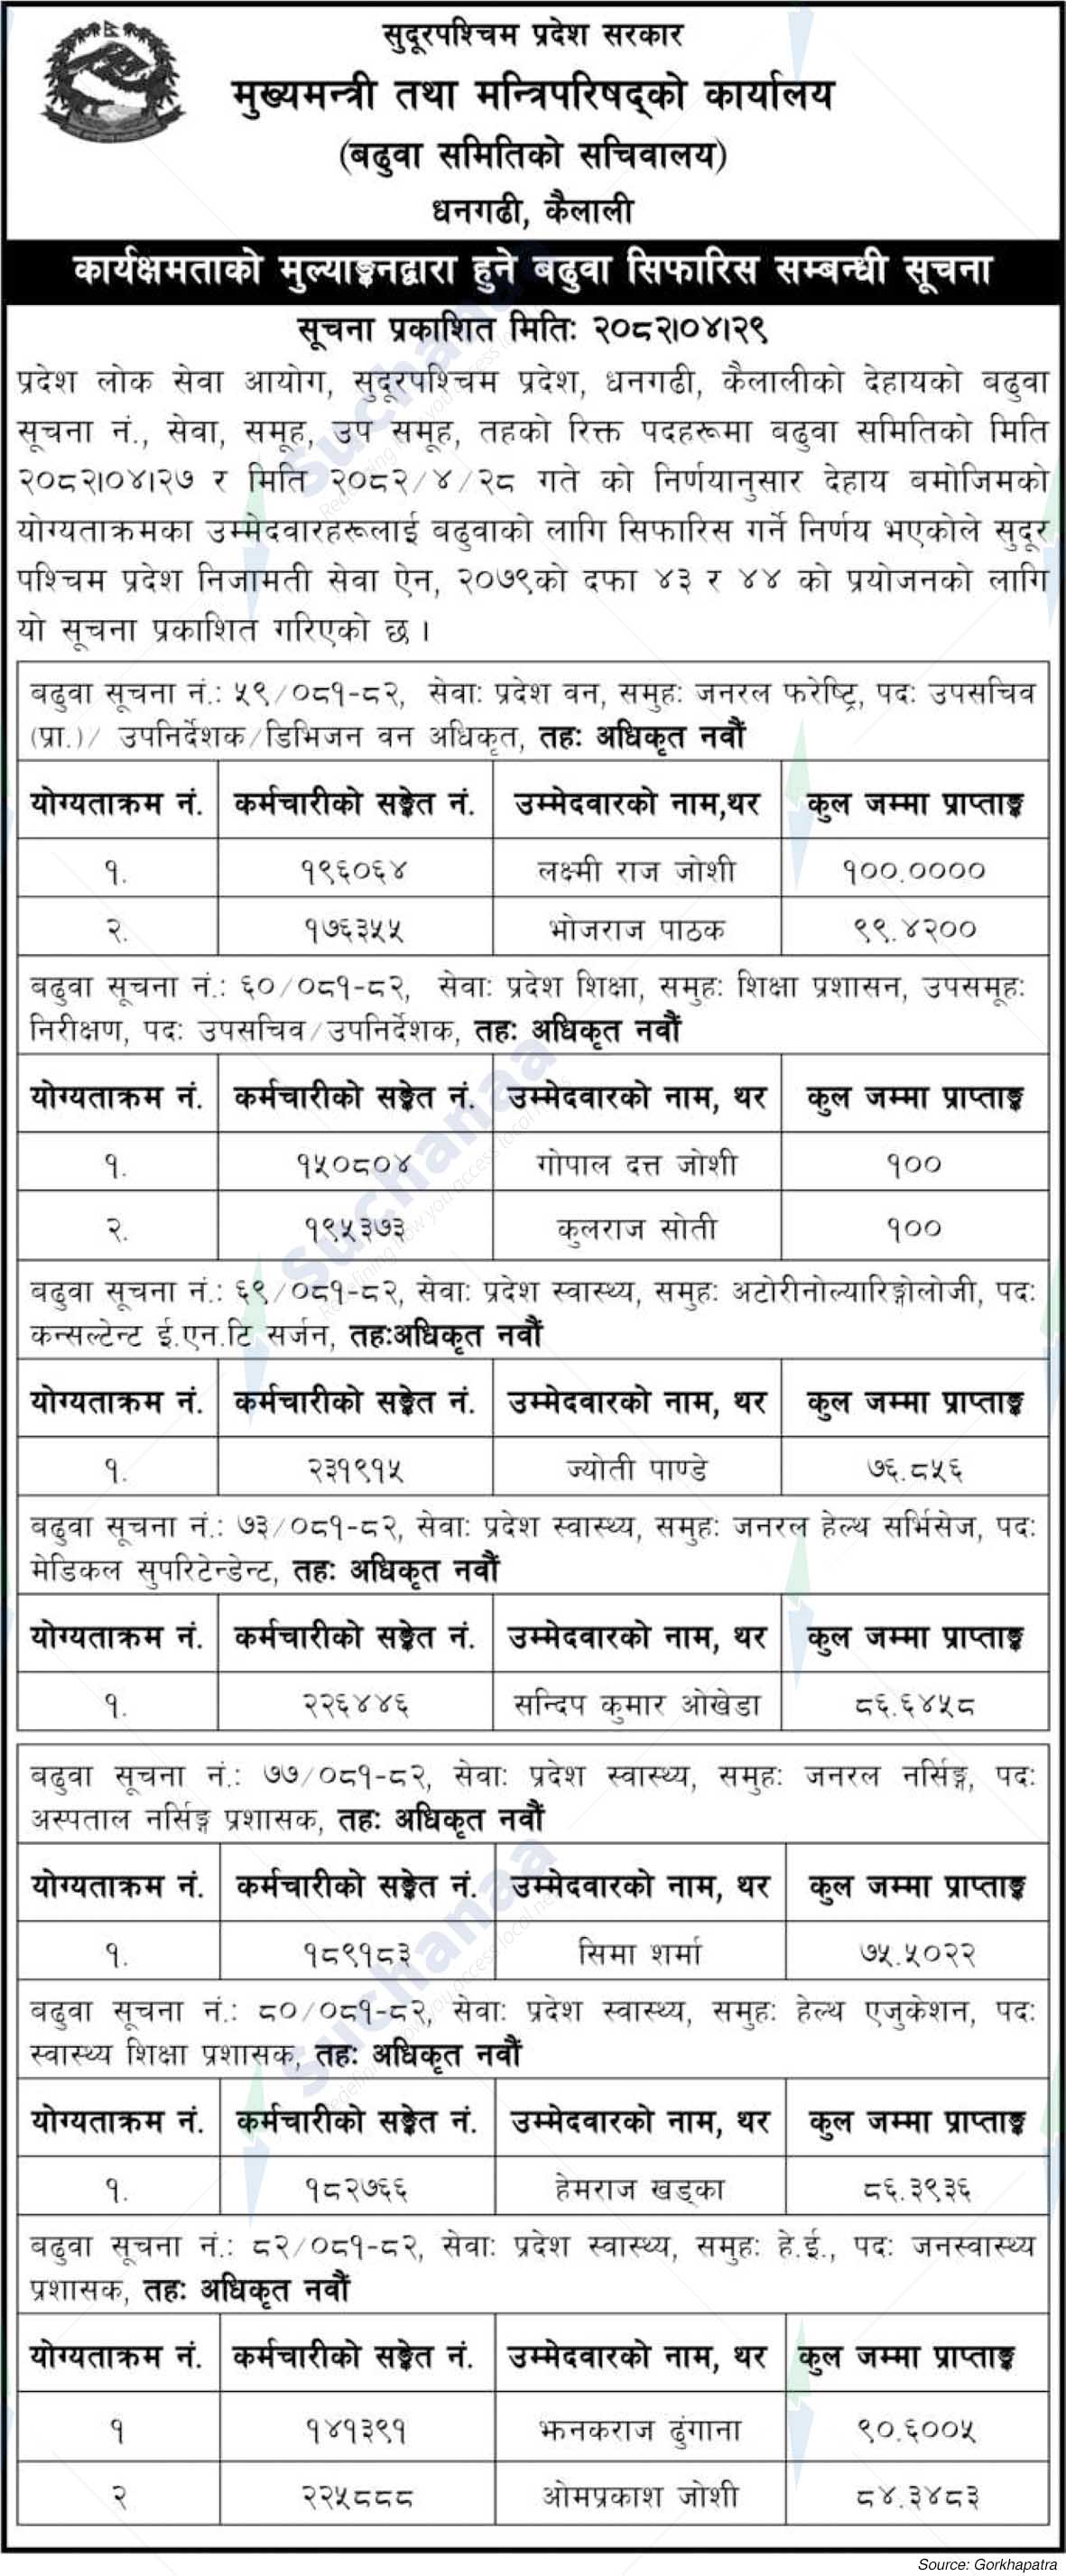 सुदूरपश्चिम प्रदेश सरकार
मुख्यमन्त्री तथा मन्त्रिपरिषद्को कार्यालय
(बढुवा समितिको सचिवालय)
धनगढी, कैलाली
कार्यक्षमताको मुल्याङ्कनद्वारा हुने बढुवा सिफारिस सम्बन्धी सूचना
सूचना प्रकाशित मितिः २०८२।०४।२९
प्रदेश लोक सेवा आयोग, सुदूरपश्चिम प्रदेश, धनगढी, कैलालीको देहायको बढुवा
सूचना नं., सेवा, समूह, उप समूह, तहको रिक्त पदहरूमा बढुवा समितिको मिति
२०८२।०४।२७ र मिति २०८२/४/२८ गते को निर्णयानुसार देहाय बमोजिमको
योग्यताक्रमका उम्मेदवारहरूलाई बढुवाको लागि सिफारिस गर्ने निर्णय भएकोले सुदूर
पश्चिम प्रदेश निजामती सेवा ऐन, २०७९को दफा ४३ र ४४ को प्रयोजनको लागि
यो सूचना प्रकाशित गरिएको छ ।
बढुवा सूचना नं.: ५९/०८१-८२, सेवाः प्रदेश वन, समुहः जनरल फरेष्ट्रि, पदः उपसचिव
(प्रा.)/ उपनिर्देशक/डिभिजन वन अधिकृत, तहः अधिकृत नवौं
योग्यताक्रम नं. कर्मचारीको सङ्केत नं. उम्मेदवारको नाम,थर कुल जम्मा प्राप्ताङ्क
१. १९६०६४ लक्ष्मी राज जोशी १००.००००
२. १७६३५५ भोजराज पाठक ९९.४२००
बढुवा सूचना नं.: ६०/०८१-८२, सेवाः प्रदेश शिक्षा, समुहः शिक्षा प्रशासन, उपसमूहः
निरीक्षण, पदः उपसचिव/उपनिर्देशक, तहः अधिकृत नवौं
योग्यताक्रम नं. कर्मचारीको सङ्केत नं. उम्मेदवारको नाम, थर कुल जम्मा प्राप्ताङ्क
१. १५०८०४ गोपाल दत्त जोशी १००
२. १९५३७३ कुलराज सोती १००
बढुवा सूचना नं.: ६९/०८१-८२, सेवाः प्रदेश स्वास्थ्य, समुहः अटोरीनोल्यारिङ्गोलोजी, पदः
कन्सल्टेन्ट ई.एन.टि सर्जन, तहःअधिकृत नवौं
योग्यताक्रम नं. कर्मचारीको सङ्केत नं. उम्मेदवारको नाम, थर कुल जम्मा प्राप्ताङ्क
१. २३१९१५ ज्योती पाण्डे ७६.८५६
बढुवा सूचना नं.: ७३/०८१-८२, सेवाः प्रदेश स्वास्थ्य, समुहः जनरल हेल्थ सर्भिसेज, पदः
मेडिकल सुपरिटेन्डेन्ट, तहः अधिकृत नवौं
योग्यताक्रम नं. कर्मचारीको सङ्केत नं. उम्मेदवारको नाम, थर कुल जम्मा प्राप्ताङ्क
१. २२६४४६ सन्दिप कुमार ओखेडा ८६.६४५८
बढुवा सूचना नं.: ७७/०८१-८२, सेवाः प्रदेश स्वास्थ्य, समुहः जनरल नर्सिङ्ग, पदः
अस्पताल नर्सिङ्ग प्रशासक, तहः अधिकृत नवौं
योग्यताक्रम नं. कर्मचारीको सङ्केत नं. उम्मेदवारको नाम, थर कुल जम्मा प्राप्ताङ्क
१. १८९१८३ सिमा शर्मा ७५.५०२२
बढुवा सूचना नं.: ८०/०८१-८२, सेवाः प्रदेश स्वास्थ्य, समुहः हेल्थ एजुकेशन, पदः
स्वास्थ्य शिक्षा प्रशासक, तहः अधिकृत नवौं
योग्यताक्रम नं. कर्मचारीको सङ्केत नं. उम्मेदवारको नाम, थर कुल जम्मा प्राप्ताङ्क
१. १८२७६६ हेमराज खड्का ८६.३९३६
बढुवा सूचना नं.: ८२/०८१-८२, सेवाः प्रदेश स्वास्थ्य, समुहः हे.ई., पदः जनस्वास्थ्य
प्रशासक, तहः अधिकृत नवौं
योग्यताक्रम नं. कर्मचारीको सङ्केत नं. उम्मेदवारको नाम, थर कुल जम्मा प्राप्ताङ्क
१ १४१३९१ झनकराज ढुंगाना ९०.६००५
२ २२५८८८ ओमप्रकाश जोशी ८४.३४८३
Source: Gorkhapatra